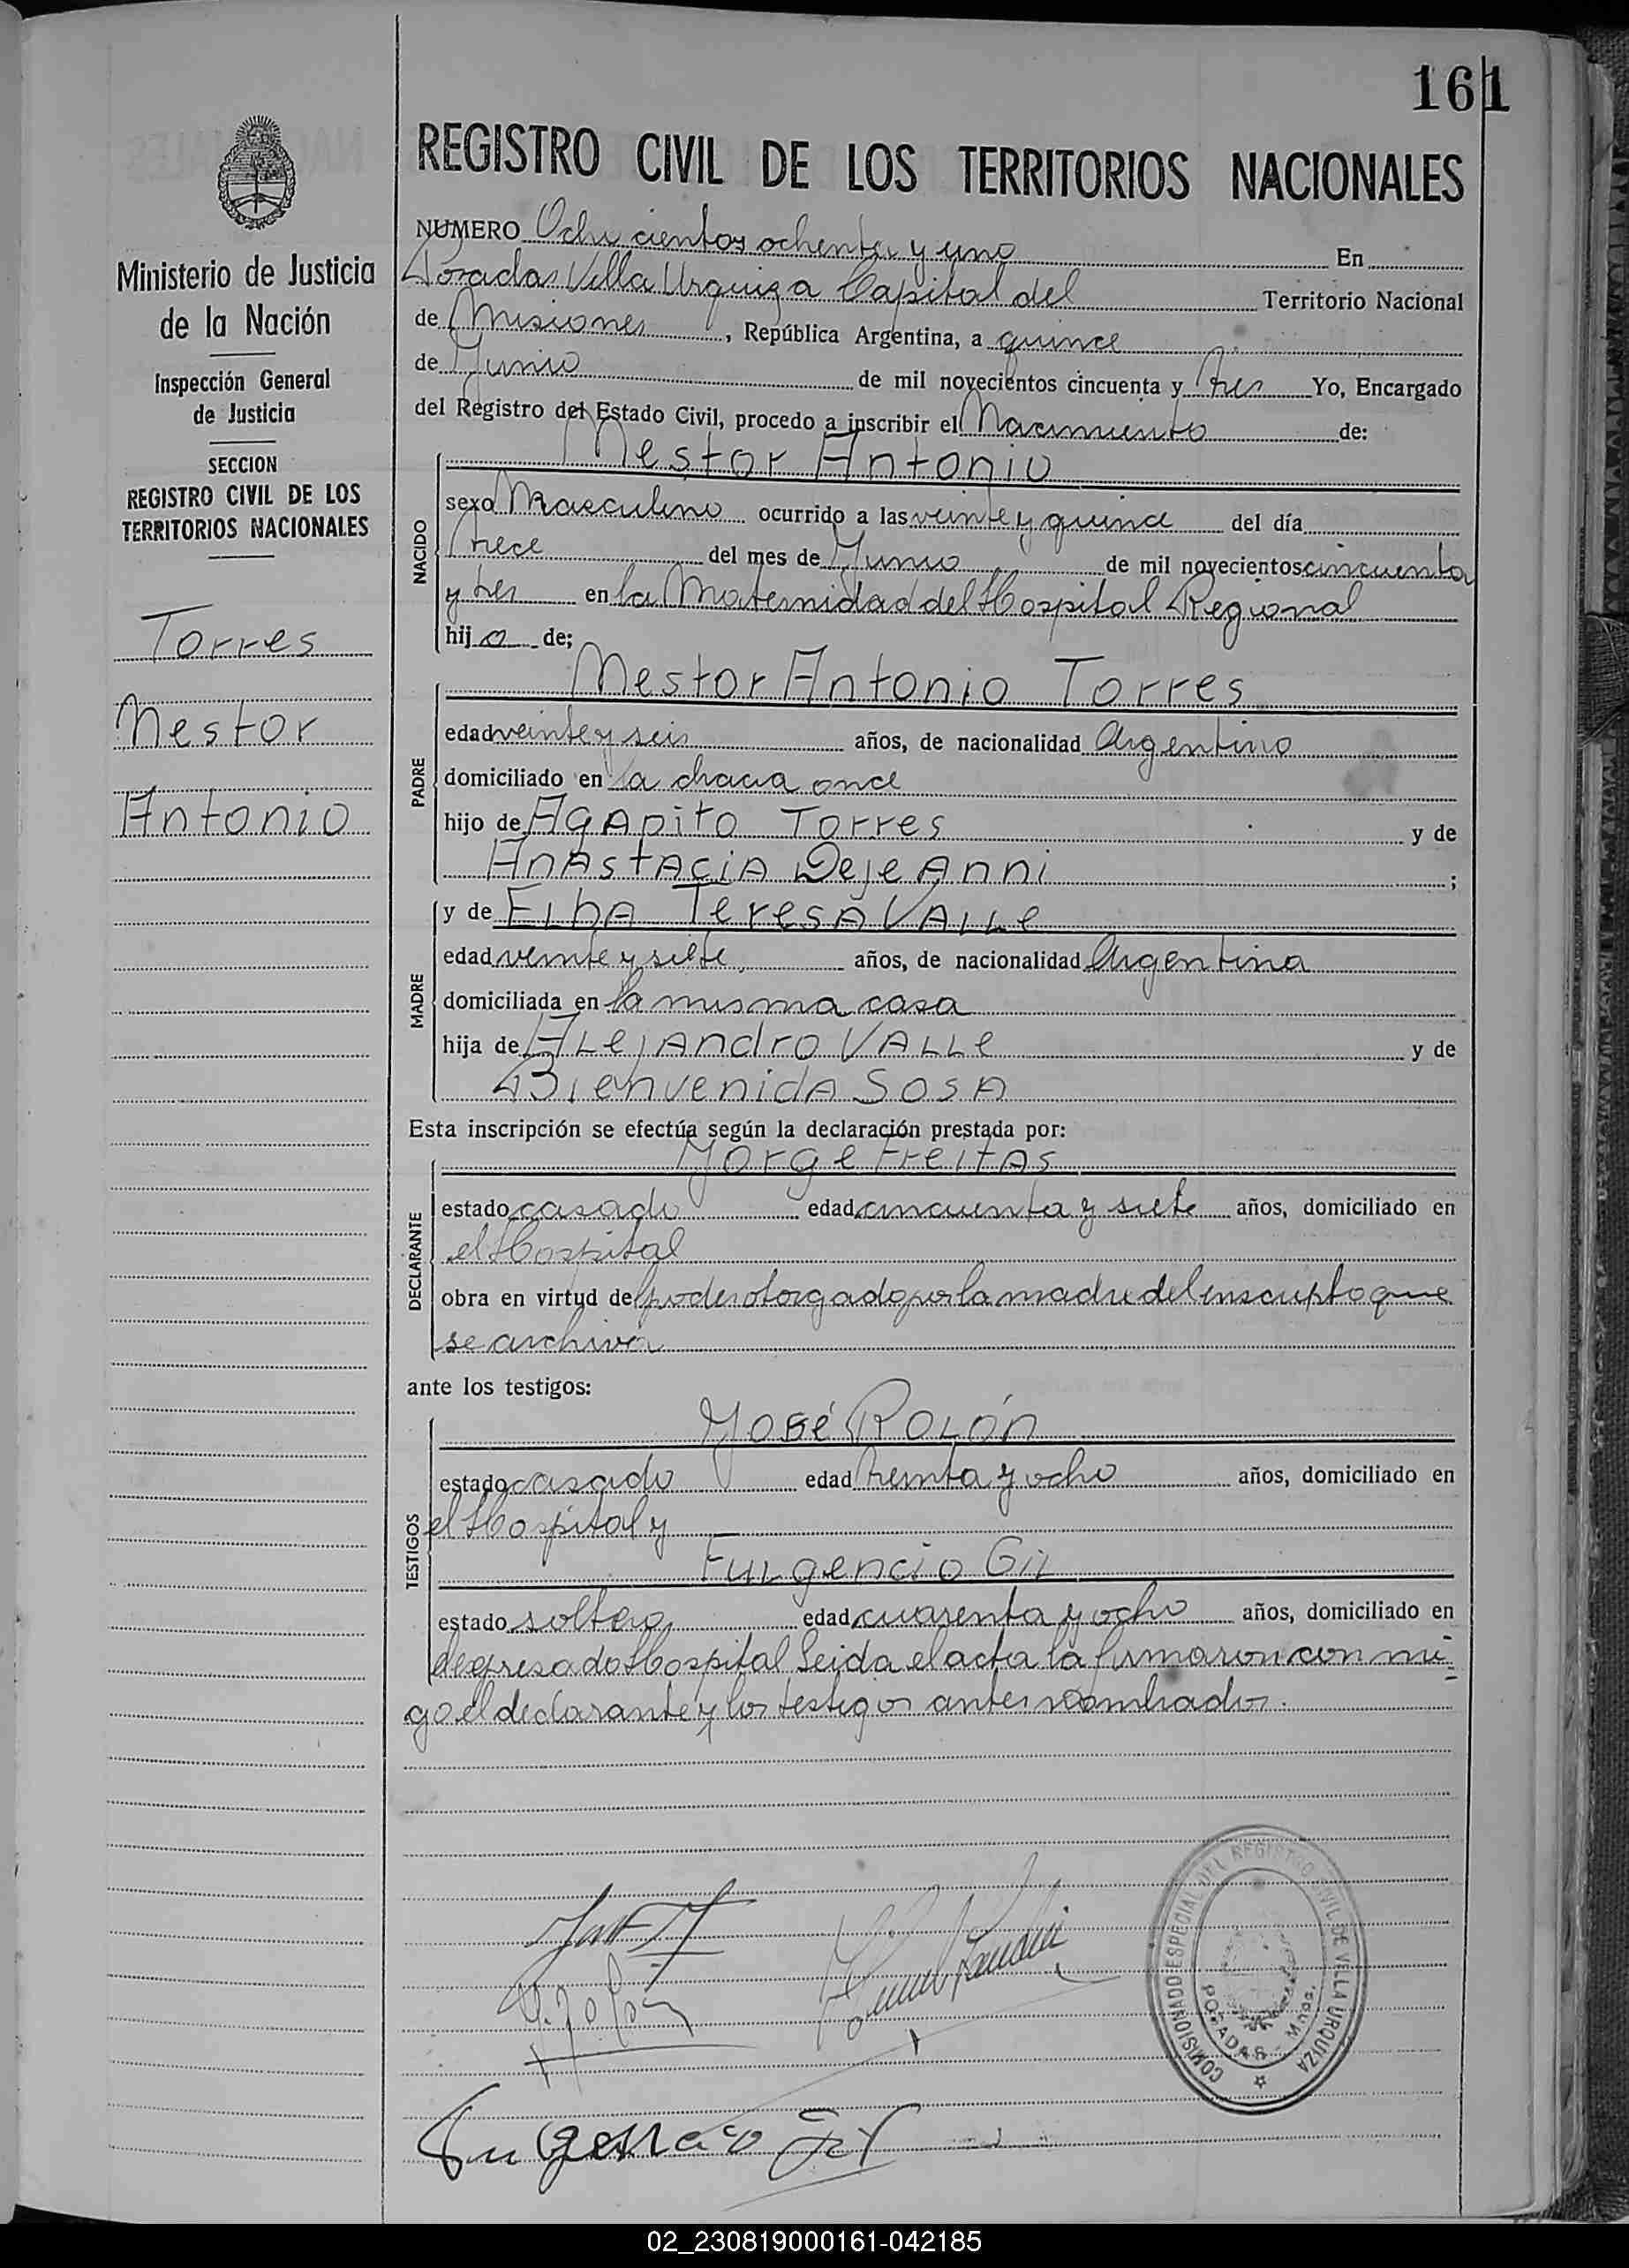 161
REGISTRO CIVIL DE LOS TERRITORIOS NACIONALES
Ministerio de Justicia
de la Nación
Inspección General
de Justicia
SECCION
REGISTRO CIVIL DE LOS
TERRITORIOS NACIONALES
Torres
Nestor
Antonio
NUMERO Ochocientos ochenta y uno En
Posadas Villa Urquiza Capital del Territorio Nacional
de Misiones, República Argentina, a quince
de Junio de mil novecientos cincuenta y tres Yo, Encargado
del Registro del Estado Civil, procedo a inscribir el Nacimiento de:
NACIDO
Nestor Antonio
sexo Masculino ocurrido a las veinte y quince del día
trece del mes de Junio de mil novecientos cincuenta
y tres en la Maternidad del Hospital Regional
hijo de;
PADRE
Nestor Antonio Torres
edad veinte y seis años, de nacionalidad Argentino
domiciliado en la chacra once
hijo de Agapito Torres y de
Anastacia Dejeanni ;
MADRE
y de Elba Teresa Valle
edad veinte y siete, años, de nacionalidad Argentina
domiciliada en la misma casa
hija de Alejandro Valle y de
Bienvenida Sosa
Esta inscripción se efectúa según la declaración prestada por:
DECLARANTE
Jorge Freitas
estado casado edad cincuenta y siete años, domiciliado en
el Hospital
obra en virtud del poder otorgado por la madre del inscripto que
se archiva
ante los testigos:
TESTIGOS
José Rolón
estado casado edad treinta y ocho años, domiciliado en
el Hospital y
Fulgencio Gil
estado soltero edad cuarenta y ocho años, domiciliado en
el expresado Hospital Leida el acta la firmaron con mi=
go el declarante y los testigos antes nombrados.
COMISIONADO ESPECIAL DEL REGISTRO CIVIL DE VILLA URQUIZA
POSADAS - Mnes.
Fulgencio Gil
02_230819000161-042185